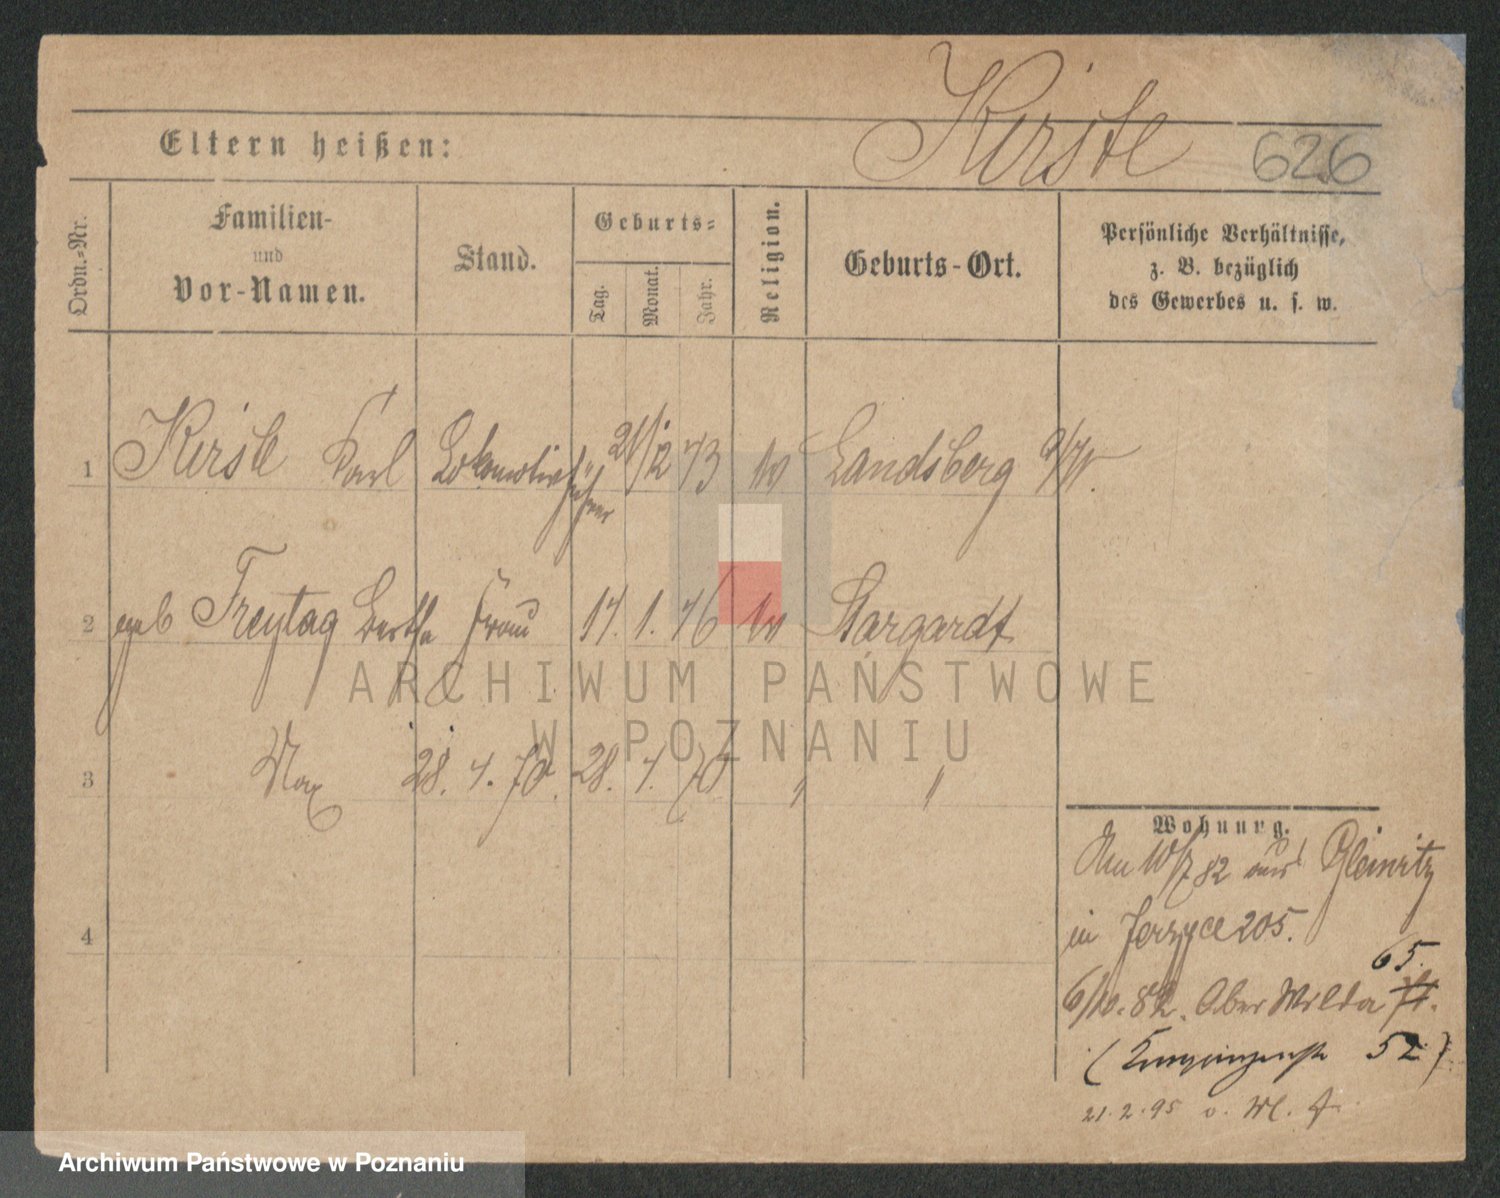 Kerste 626
Eltern heißen:
Ordn.-Nr.
Familien-
und
Vor-Namen.
Stand.
Geburts-
Tag.
Monat.
Jahr.
Religion.
Geburts-Ort.
Persönliche Verhältnisse,
z. B. bezüglich
des Gewerbes u. s. w.
1 Kerste Karl Lokomotivführer 21/12 43 ev Landsberg a/W.
2 geb Freytag Bertha Frau 17. 1. 46 ev Stargardt
3 Max 28. 4. 70. 28. 4. 70 " "
4
Wohnung.
Am 10/7 82 aus Gleiwitz
in Jerzyce 205.
65.
6/10. 82. Ober Wilda
( 52 )
21.2.95 v. W.
ARCHIWUM PAŃSTWOWE
W POZNANIU
Archiwum Państwowe w Poznaniu